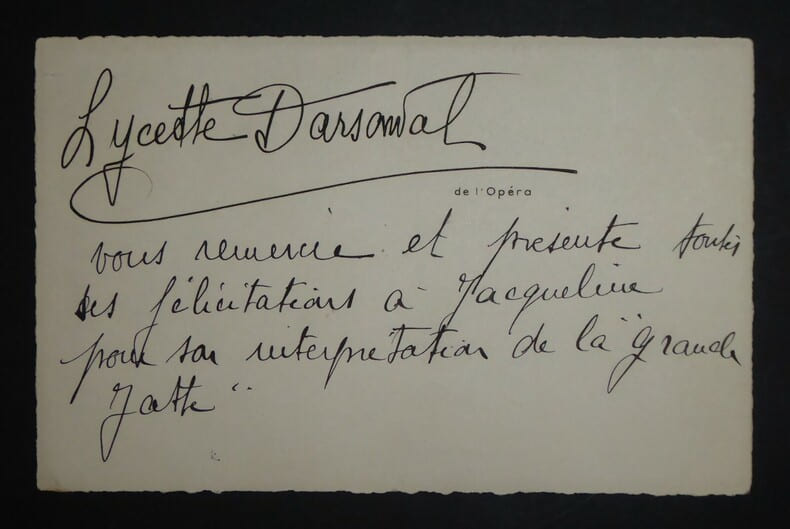 Lycette Darsonval
de l'Opéra
vous remercie et présente toutes
ses félicitations à Jacqueline
pour son interprétation de la "grande
Jatte"